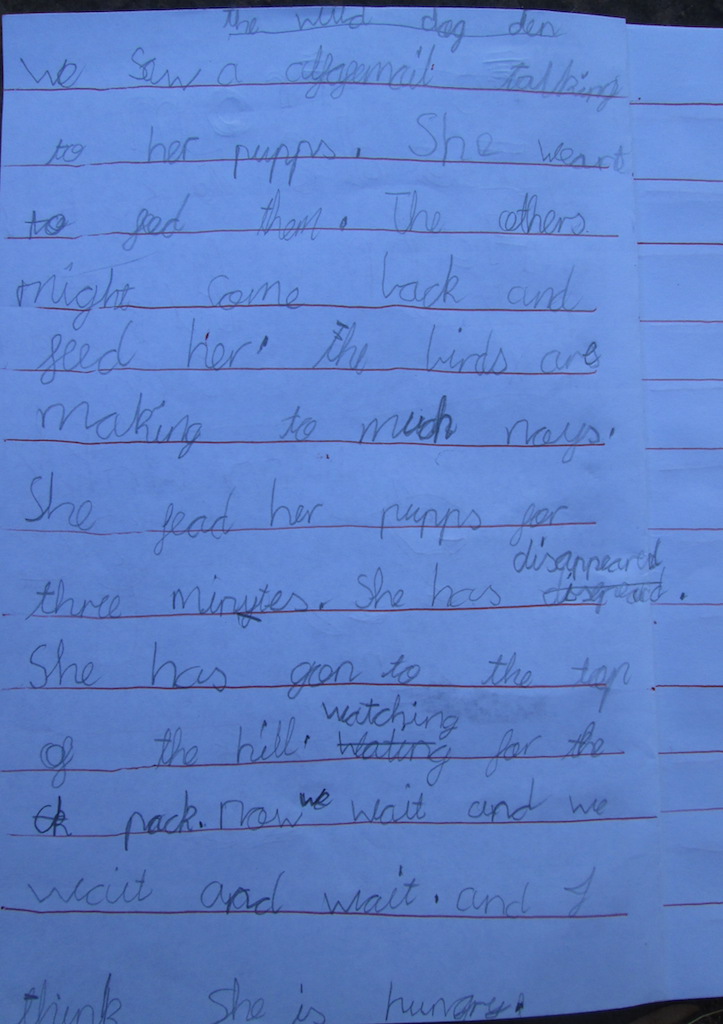 the wild dog den
we saw a talking
to her pupps. She weart
to feed them. The others
might come back and
feed her. the birds are
making to much noys.
She fead her pupps for
three minytes. She has disappeared.
She has gon to the top
of the hill. watching for the
pack. now we wait and we
wait and wait. and I
think she is hungry.